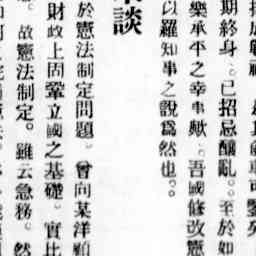 期終身。已招忌釀亂。至於如
樂承平之幸事歟。吾國修改憲
以羅知事之說爲然也。
談
於憲法制定問題。曾向某洋顧
財政上固鞏立國之基礎。實比
。故憲法制定。雖云急務。然